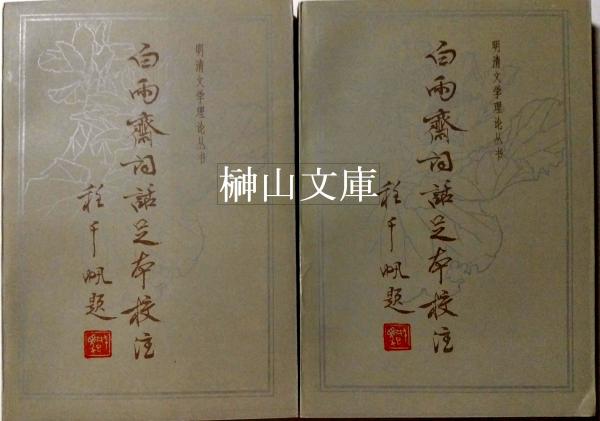 明清文学理论丛书
白雨齋詞話足本校注
程千帆题
明清文学理论丛书
白雨齋詞話足本校注
程千帆题
榊山文庫